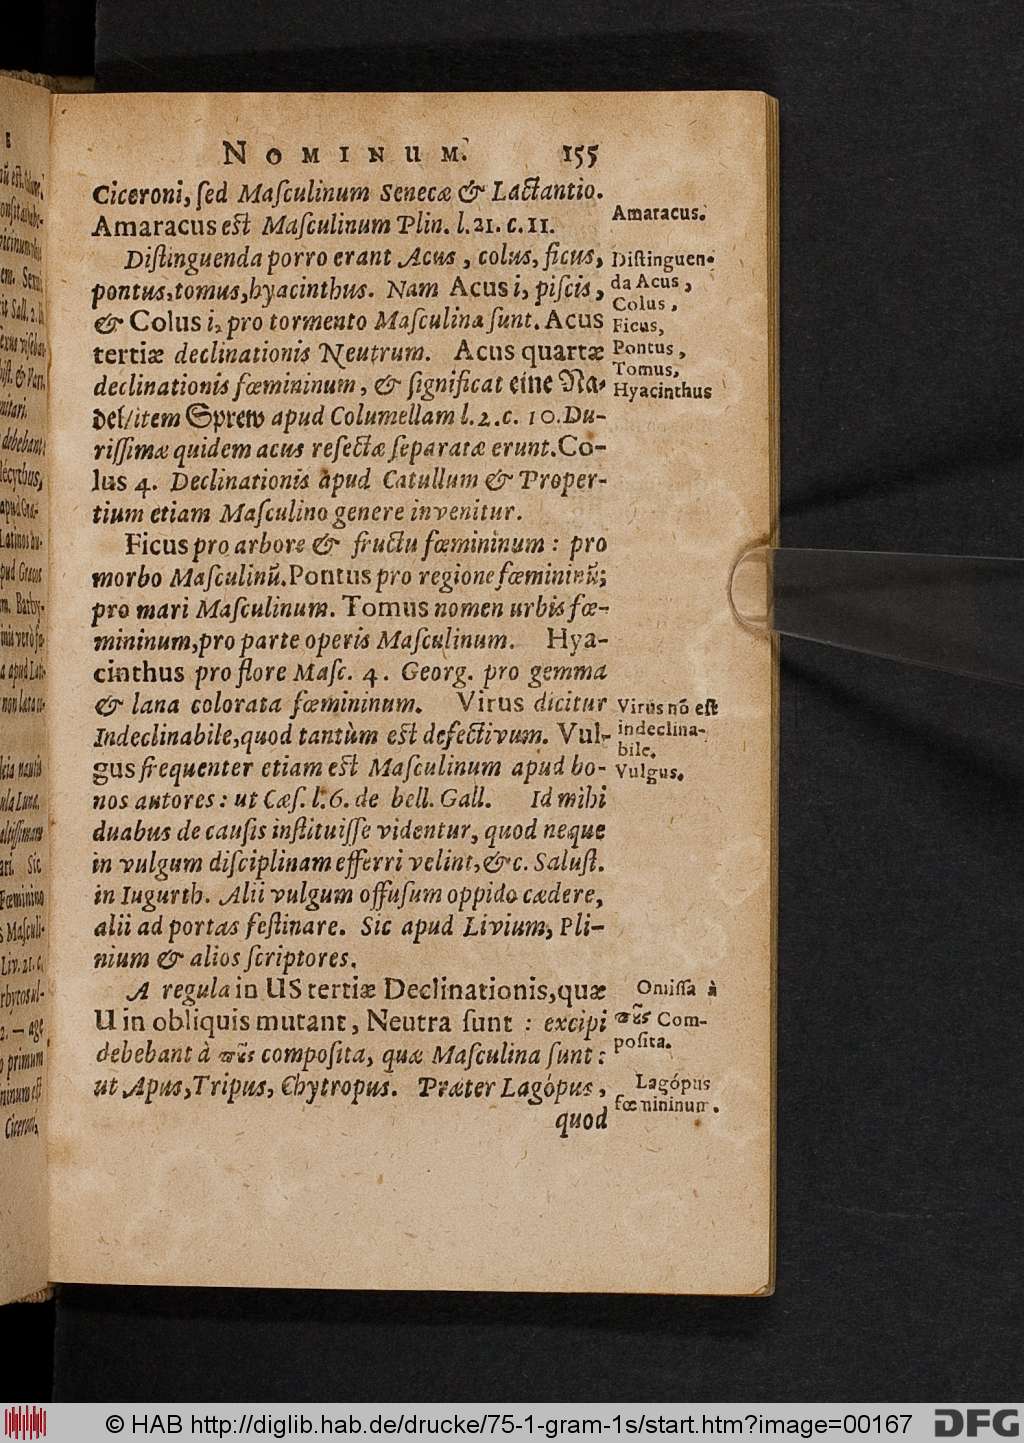 NOMINUM. 155
Ciceroni, ſed Maſculinum Senecæ & Lactantio.
Amaracus est Maſculinum Plin. l. 21. c. 11.
Diſtinguenda porro erant Acus, colus, ficus,
pontus, tomus, hyacinthus. Nam Acus i, piſcis,
& Colus i, pro tormento Maſculina ſunt. Acus
tertiæ declinationis Neutrum. Acus quartæ
declinationis fœmininum, & ſignificat eine Na-
del/ item Sprew apud Columellam l. 2. c. 10. Du-
riſſimæ quidem acus reſectæ ſeparatæ erunt. Co-
lus 4. Declinationis apud Catullum & Proper-
tium etiam Maſculino genere invenitur.
Ficus pro arbore & fructu fœmininum: pro
morbo Maſculinũ. Pontus pro regione fœmininũ;
pro mari Maſculinum. Tomus nomen urbis fœ-
mininum, pro parte operis Maſculinum. Hya-
cinthus pro flore Maſc. 4. Georg. pro gemma
& lana colorata fœmininum. Virus dicitur
Indeclinabile, quod tantùm est defectivum. Vul-
gus frequenter etiam est Maſculinum apud bo-
nos autores: ut Cæſ. l. 6. de bell. Gall. Id mihi
duabus de cauſis inſtituiſſe videntur, quod neque
in vulgum diſciplinam efferri velint, &c. Saluſt.
in Iugurth. Alii vulgum offuſum oppido cædere,
alii ad portas feſtinare. Sic apud Livium, Pli-
nium & alios ſcriptores.
A regula in US tertiæ Declinationis, quæ
U in obliquis mutant, Neutra ſunt: excipi
debebant à πȣ̃ς compoſita, quæ Maſculina ſunt:
ut Apus, Tripus, Chytropus. Præter Lagópus,
quod
Amaracus.
Diſtinguen-
da Acus,
Colus,
Ficus,
Pontus,
Tomus,
Hyacinthus
Virus nõ eſt
indeclina-
bile.
Vulgus.
Omiſſa à
πȣ̃ς Com-
poſita.
Lagópus
fœmininum.
© HAB http://diglib.hab.de/drucke/75-1-gram-1s/start.htm?image=00167
DFG